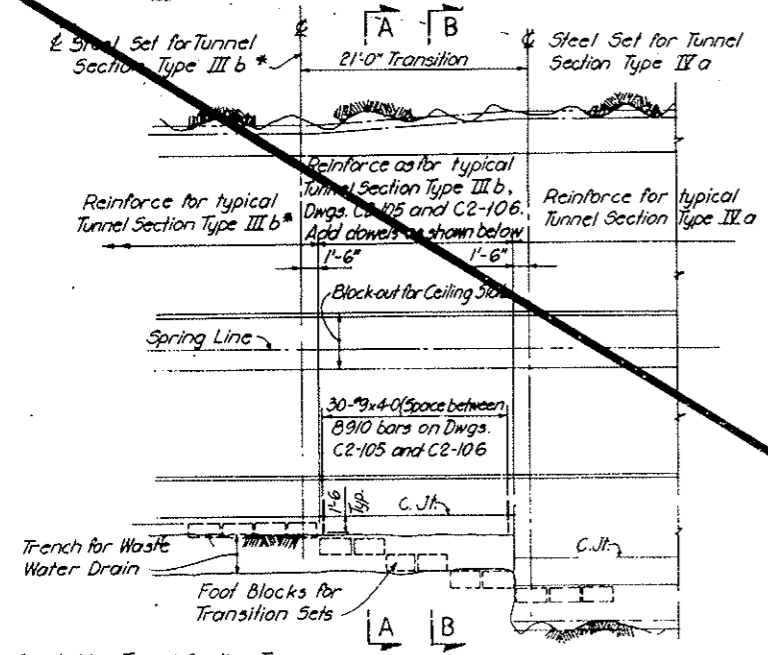 A B
℄ Steel Set for Tunnel
Section Type III b *
21'-0" Transition
℄ Steel Set for Tunnel
Section Type IV a
Reinforce for typical
Tunnel Section Type III b*
Reinforce as for typical
Tunnel Section Type III b,
Dwgs. C2-105 and C2-106.
Add dowels as shown below
Reinforce for typical
Tunnel Section Type IV a
1'-6" 1'-6"
Block-out for Ceiling
Spring Line
30-#9x4-0(Space between
8910 bars on Dwgs.
C2-105 and C2-106
1'-6
Typ.
C. Jt.
Trench for Waste
Water Drain
C. Jt.
Foot Blocks for
Transition Sets
A B